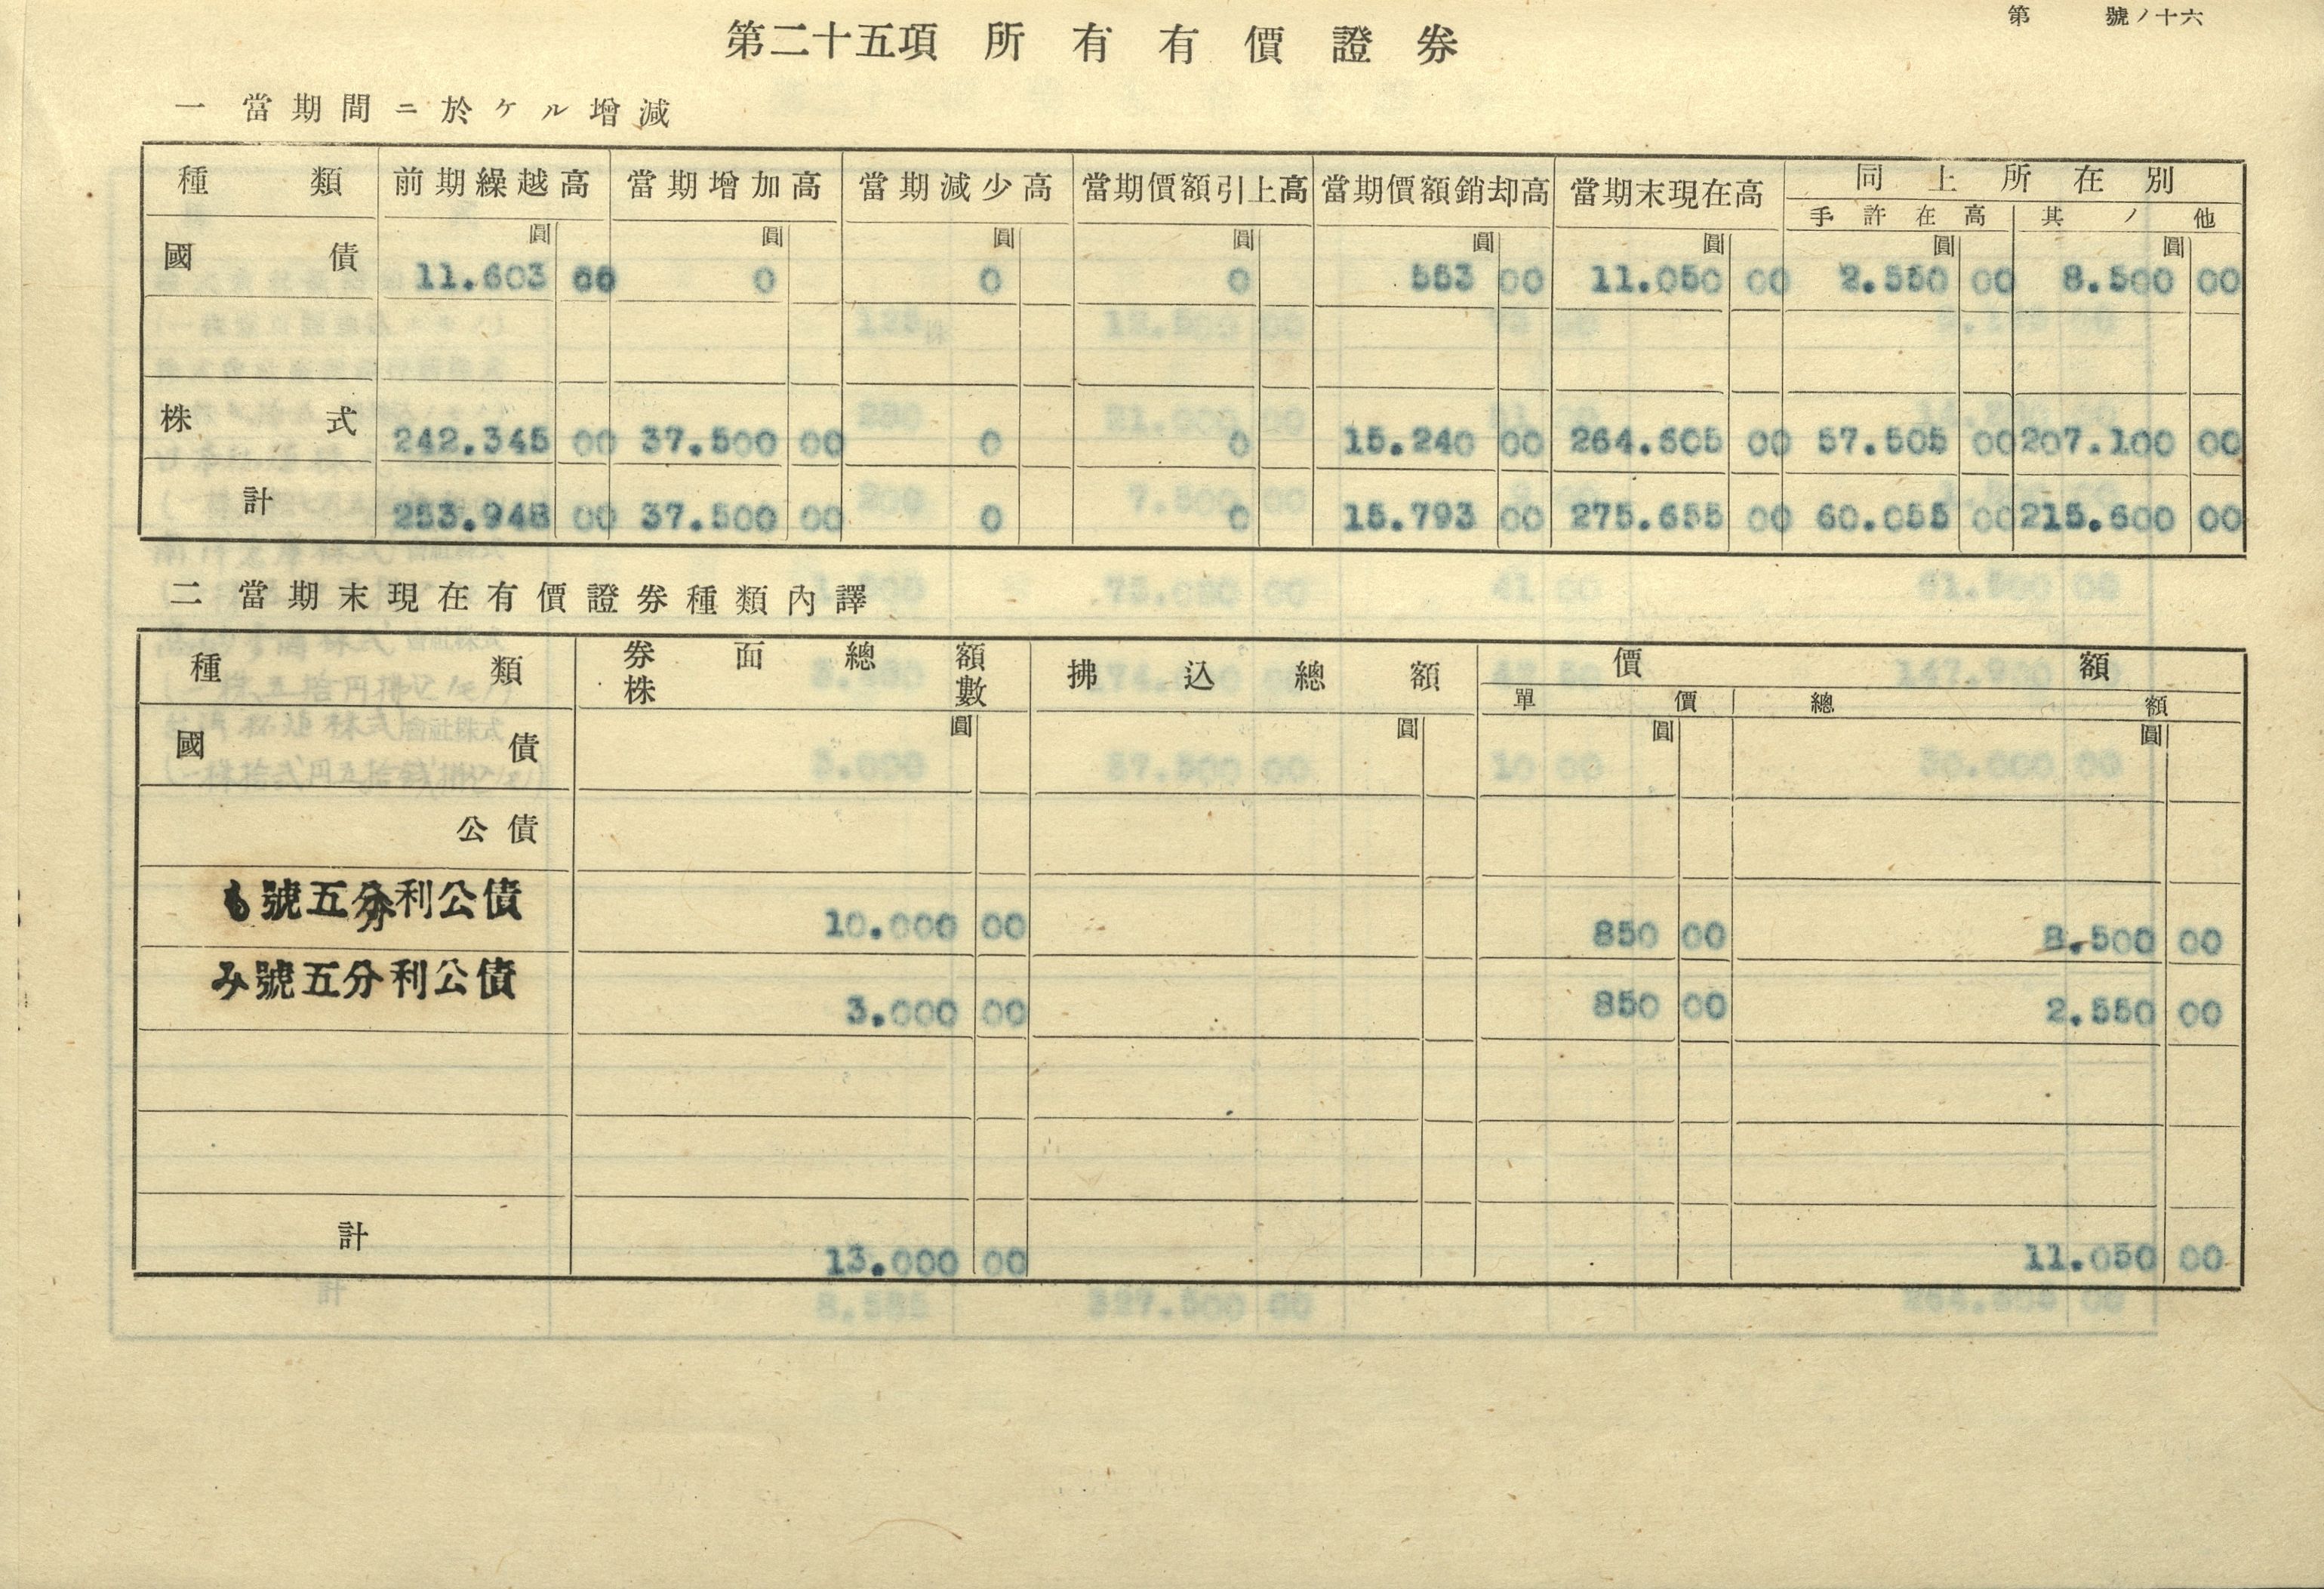 第 號ノ十六
第二十五項 所有有價證券
一 當期間ニ於ケル增減
種類 前期繰越高 當期增加高 當期減少高 當期價額引上高 當期價額銷却高 當期末現在高 同上所在別
手許在高 其ノ他
圓 圓 圓 圓 圓 圓 圓 圓
國債 11.603 00 0 0 0 553 00 11.050 00 2.550 00 8.500 00
株式 242.345 00 37.500 00 0 0 15.240 00 264.605 00 57.505 00 207.100 00
計 253.948 00 37.500 00 0 0 15.793 00 275.655 00 60.055 00 215.600 00
二 當期末現在有價證券種類內譯
種類 券面總額 拂込總額 價額
株數 單價 總額
圓 圓 圓 圓
國債
公債
も號五分利公債 10.000 00 850 00 8.500 00
み號五分利公債 3.000 00 850 00 2.550 00
計 13.000 00 11.050 00